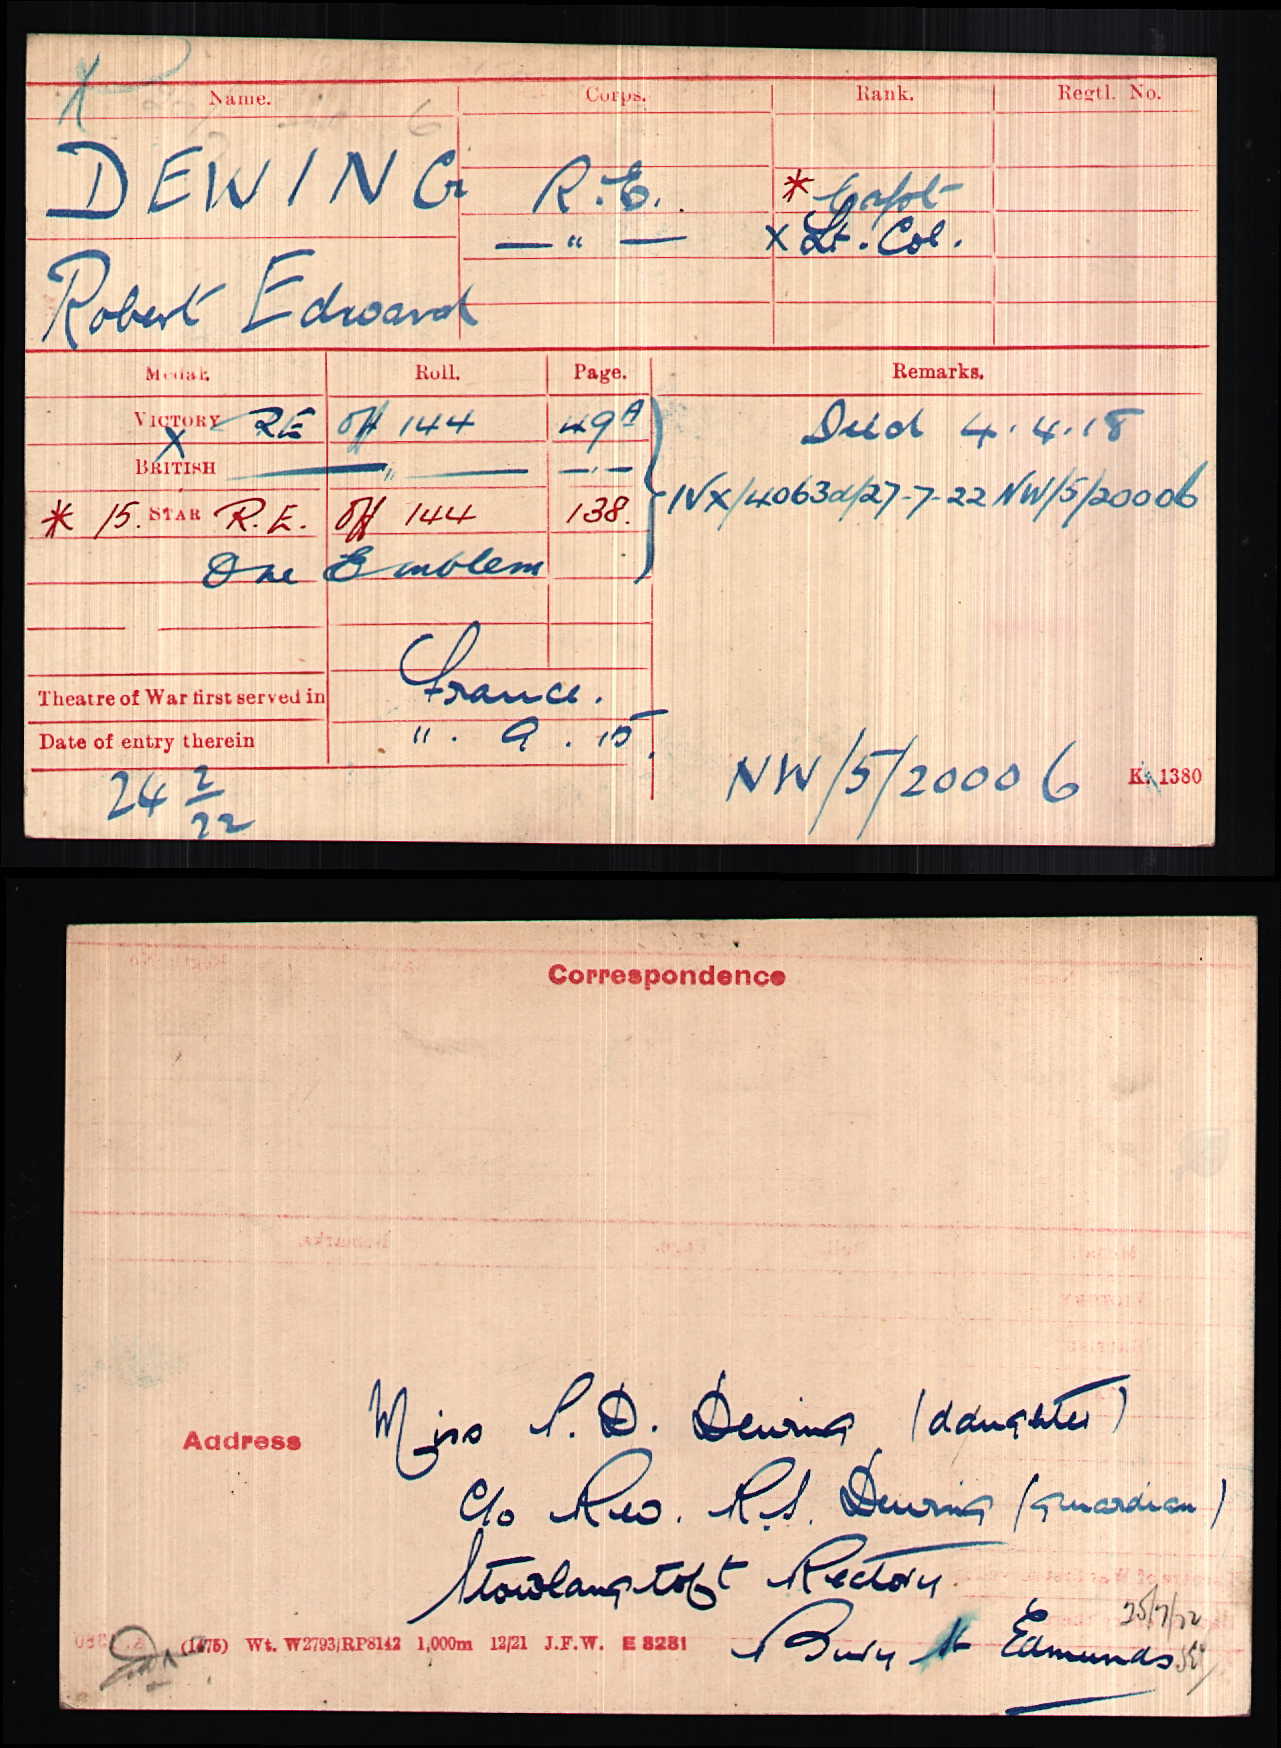 Name. Corps. Rank. Regtl. No.
DEWING R.E. * Capt
— " — X Lt. Col.
Robert Edward
Medal. Roll. Page. Remarks.
VICTORY RE Off 144 49A Died 4.4.18
X
BRITISH — " — — " —
IVX/4063d/27-7-22 NW/5/20006
* 15. STAR R.E. Off 144 138.
One Emblem
Theatre of War first served in France.
Date of entry therein ". 9. 15.
24 2/22 NW/5/20006 K. 1380
Correspondence
Address Miss S. D. Dewing (daughter)
C/o Rev. R.S. Dewing (guardian)
Stowlangtoft Rectory
25/7/22
Bury St Edmunds
(1475) Wt. W2793/RP8142 1,000m 12/21 J.F.W. E 8281